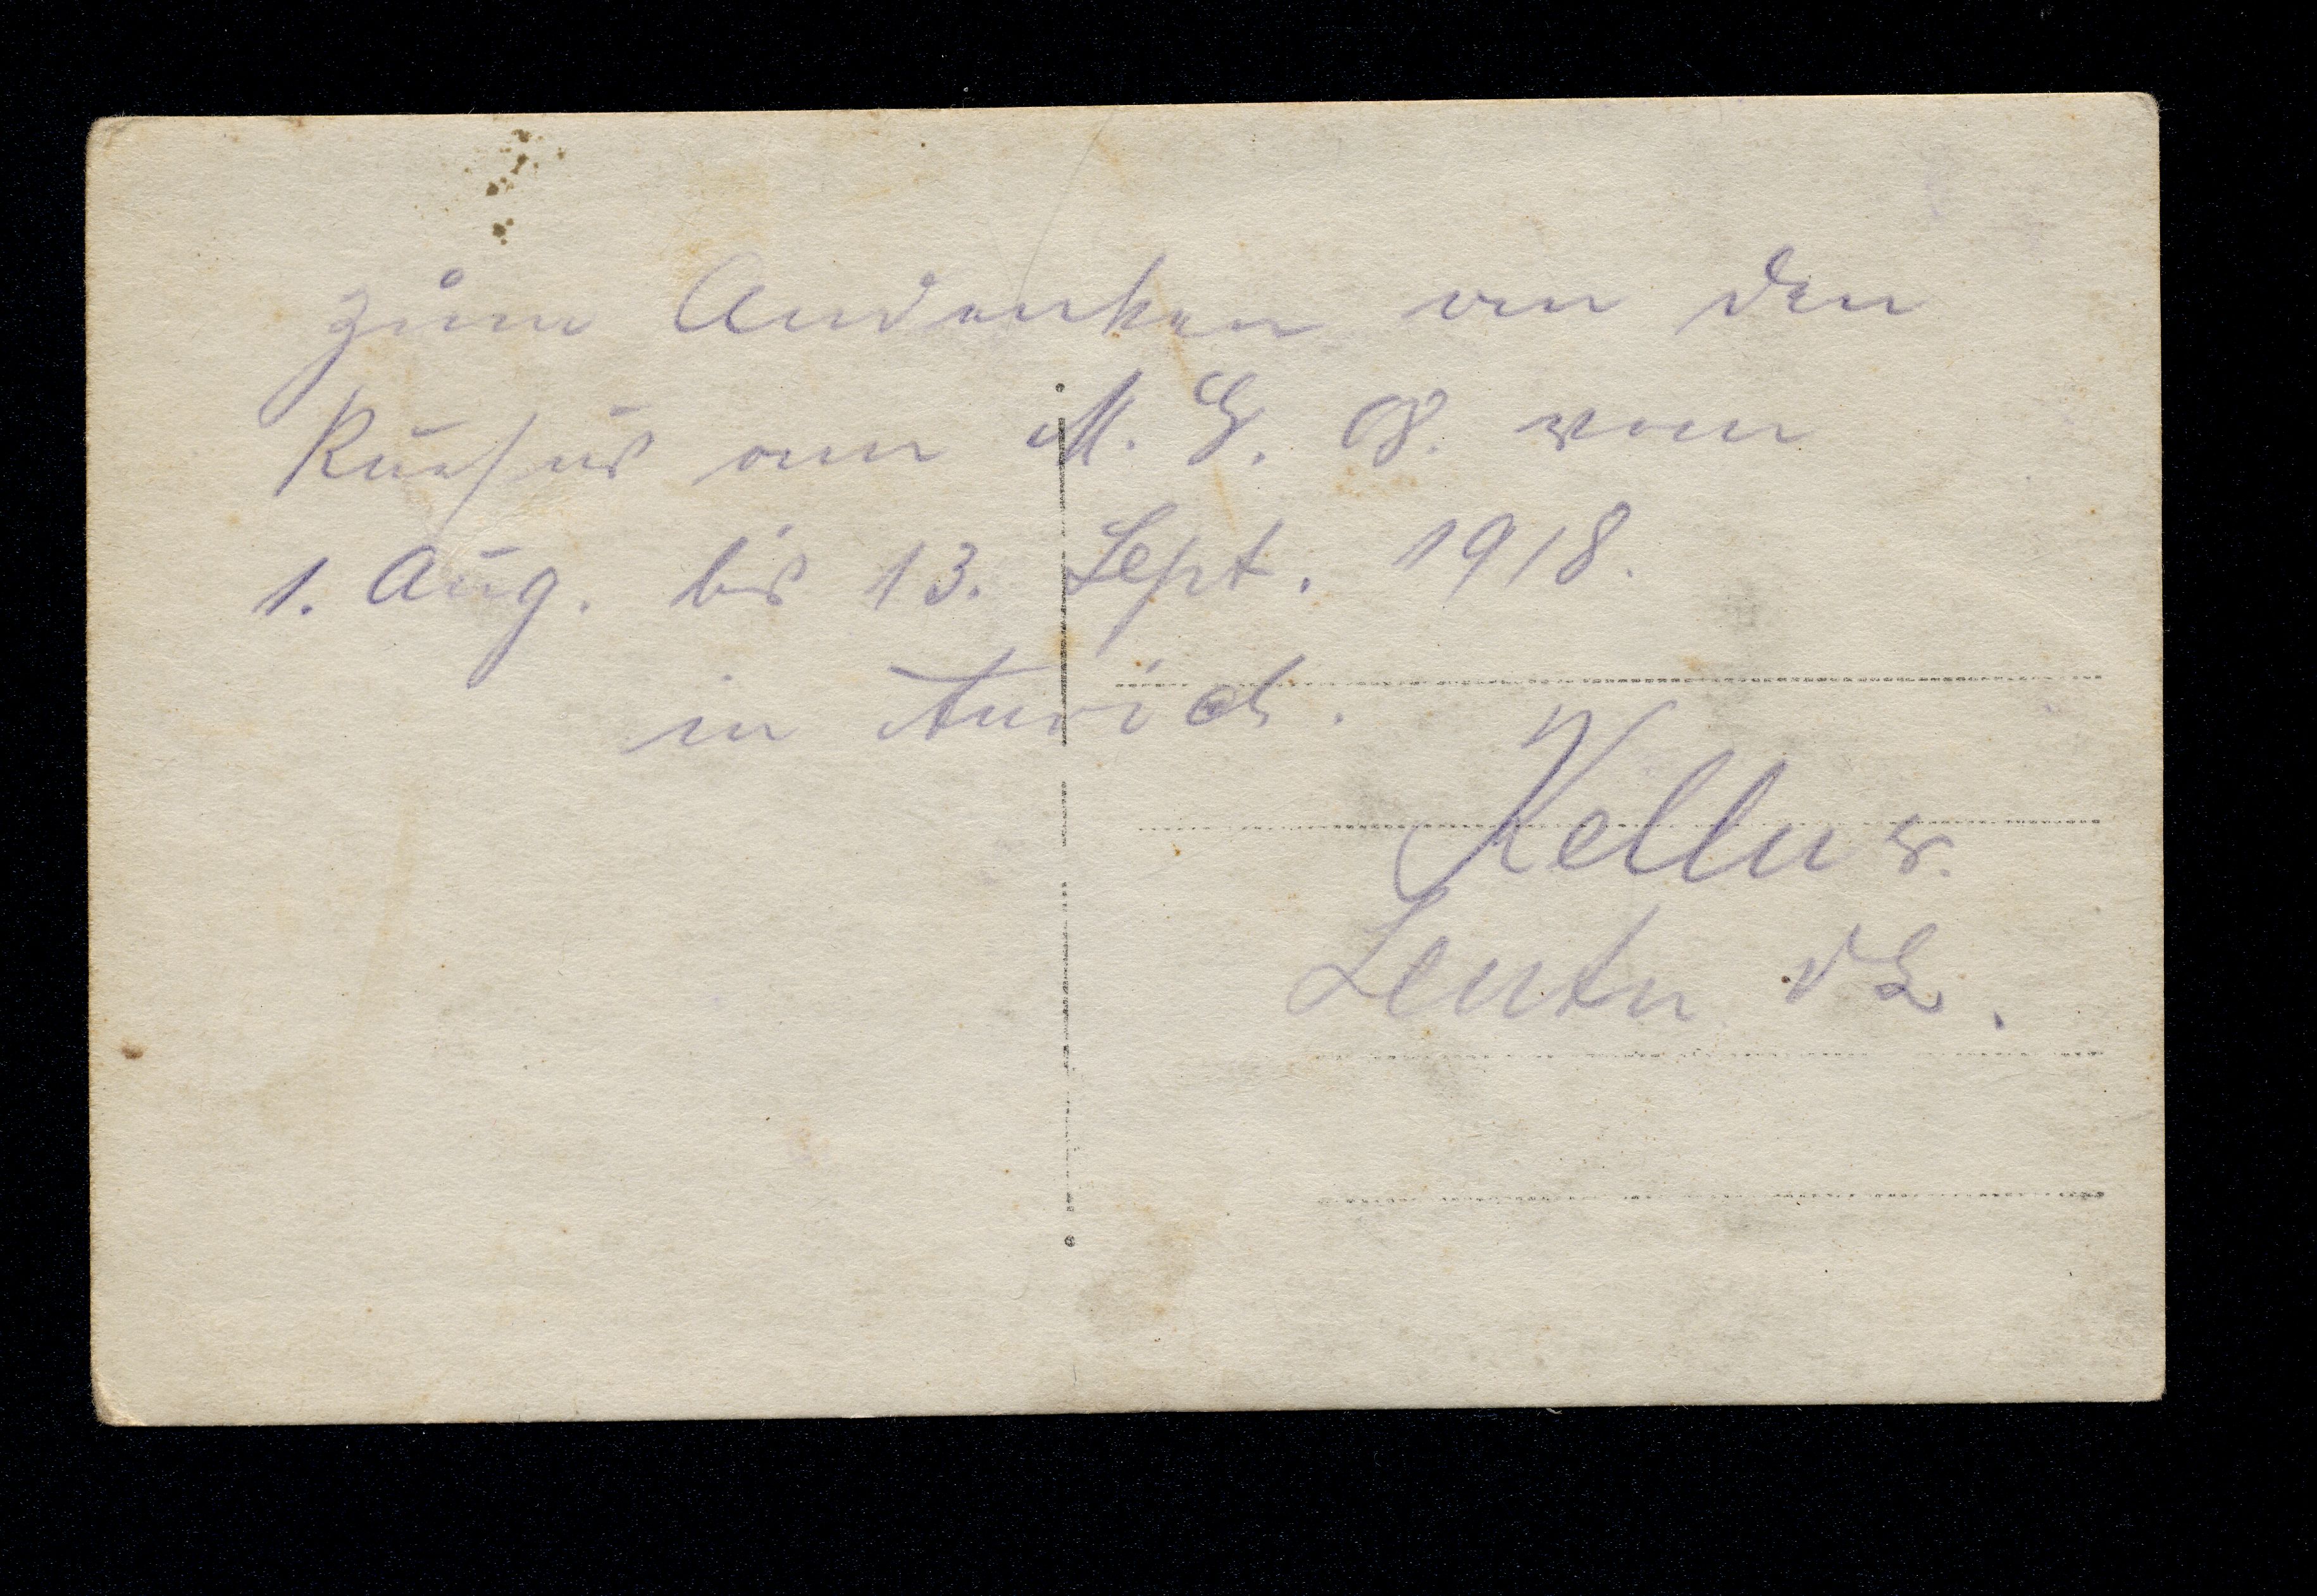 Zum Andenken an den
Kursus am M. G. 08. vom
1. Aug. bis 13. Sept. 1918.
in Aurich.
Keller
Leutn. d L.